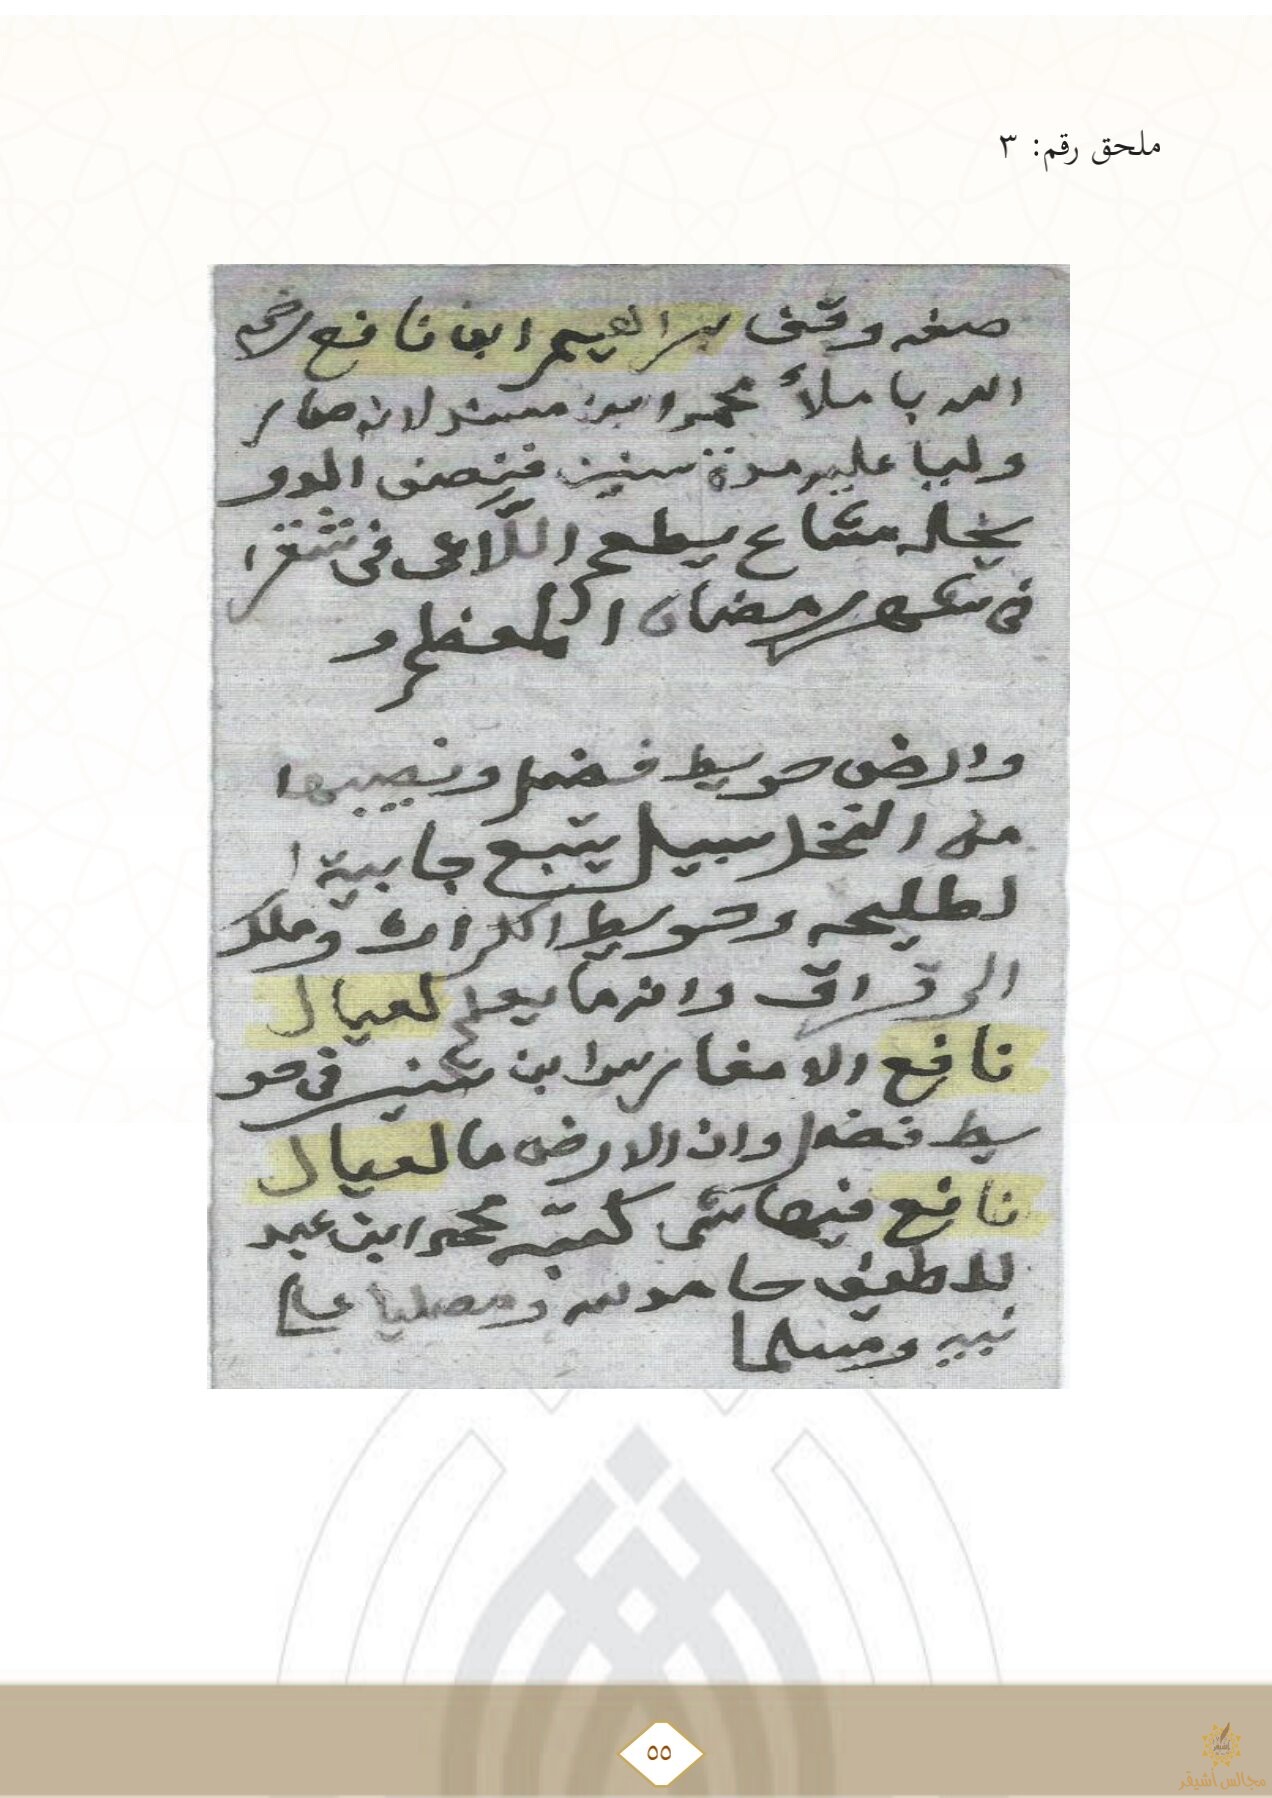 ملحق رقم: ٣
صفه وقف ابراهيم ابن نافع رحمه
الله باملأ محمد ابن مسند لانه صار
وليا عليه مدة سنين فنصف الدو
يخله مشاع يطعم اللاعى فى شقرا
فى شهر رمضان المعظم و
وارض حويط فضل ونصيبها
من النخل سبيل يتبع جابية ا
لطليحه وحويط الكراث وملك
الرقراق وانه ما يعلم لعيال
نافع الا مغارسة ابن في حو
يط فضل وان الارض ما لعيال
نافع فيها شى كتبه محمد ابن عبد
للطيف حامدا لله ومصليا على
نبيه ومسلما
٥٥
مجالس أشيقر